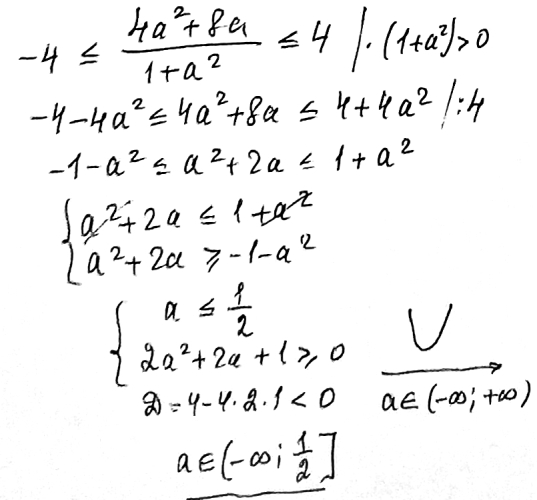 -4 ≤ (4a²+8a)/(1+a²) ≤ 4 /·(1+a²)>0
-4-4a² ≤ 4a²+8a ≤ 4+4a² /:4
-1-a² ≤ a²+2a ≤ 1+a²
{ a²+2a ≤ 1+a²
{ a²+2a ≥ -1-a²
{ a ≤ 1/2
{ 2a²+2a+1 ≥ 0
D=4-4·2·1<0 a∈(-∞;+∞)
a∈(-∞; 1/2]